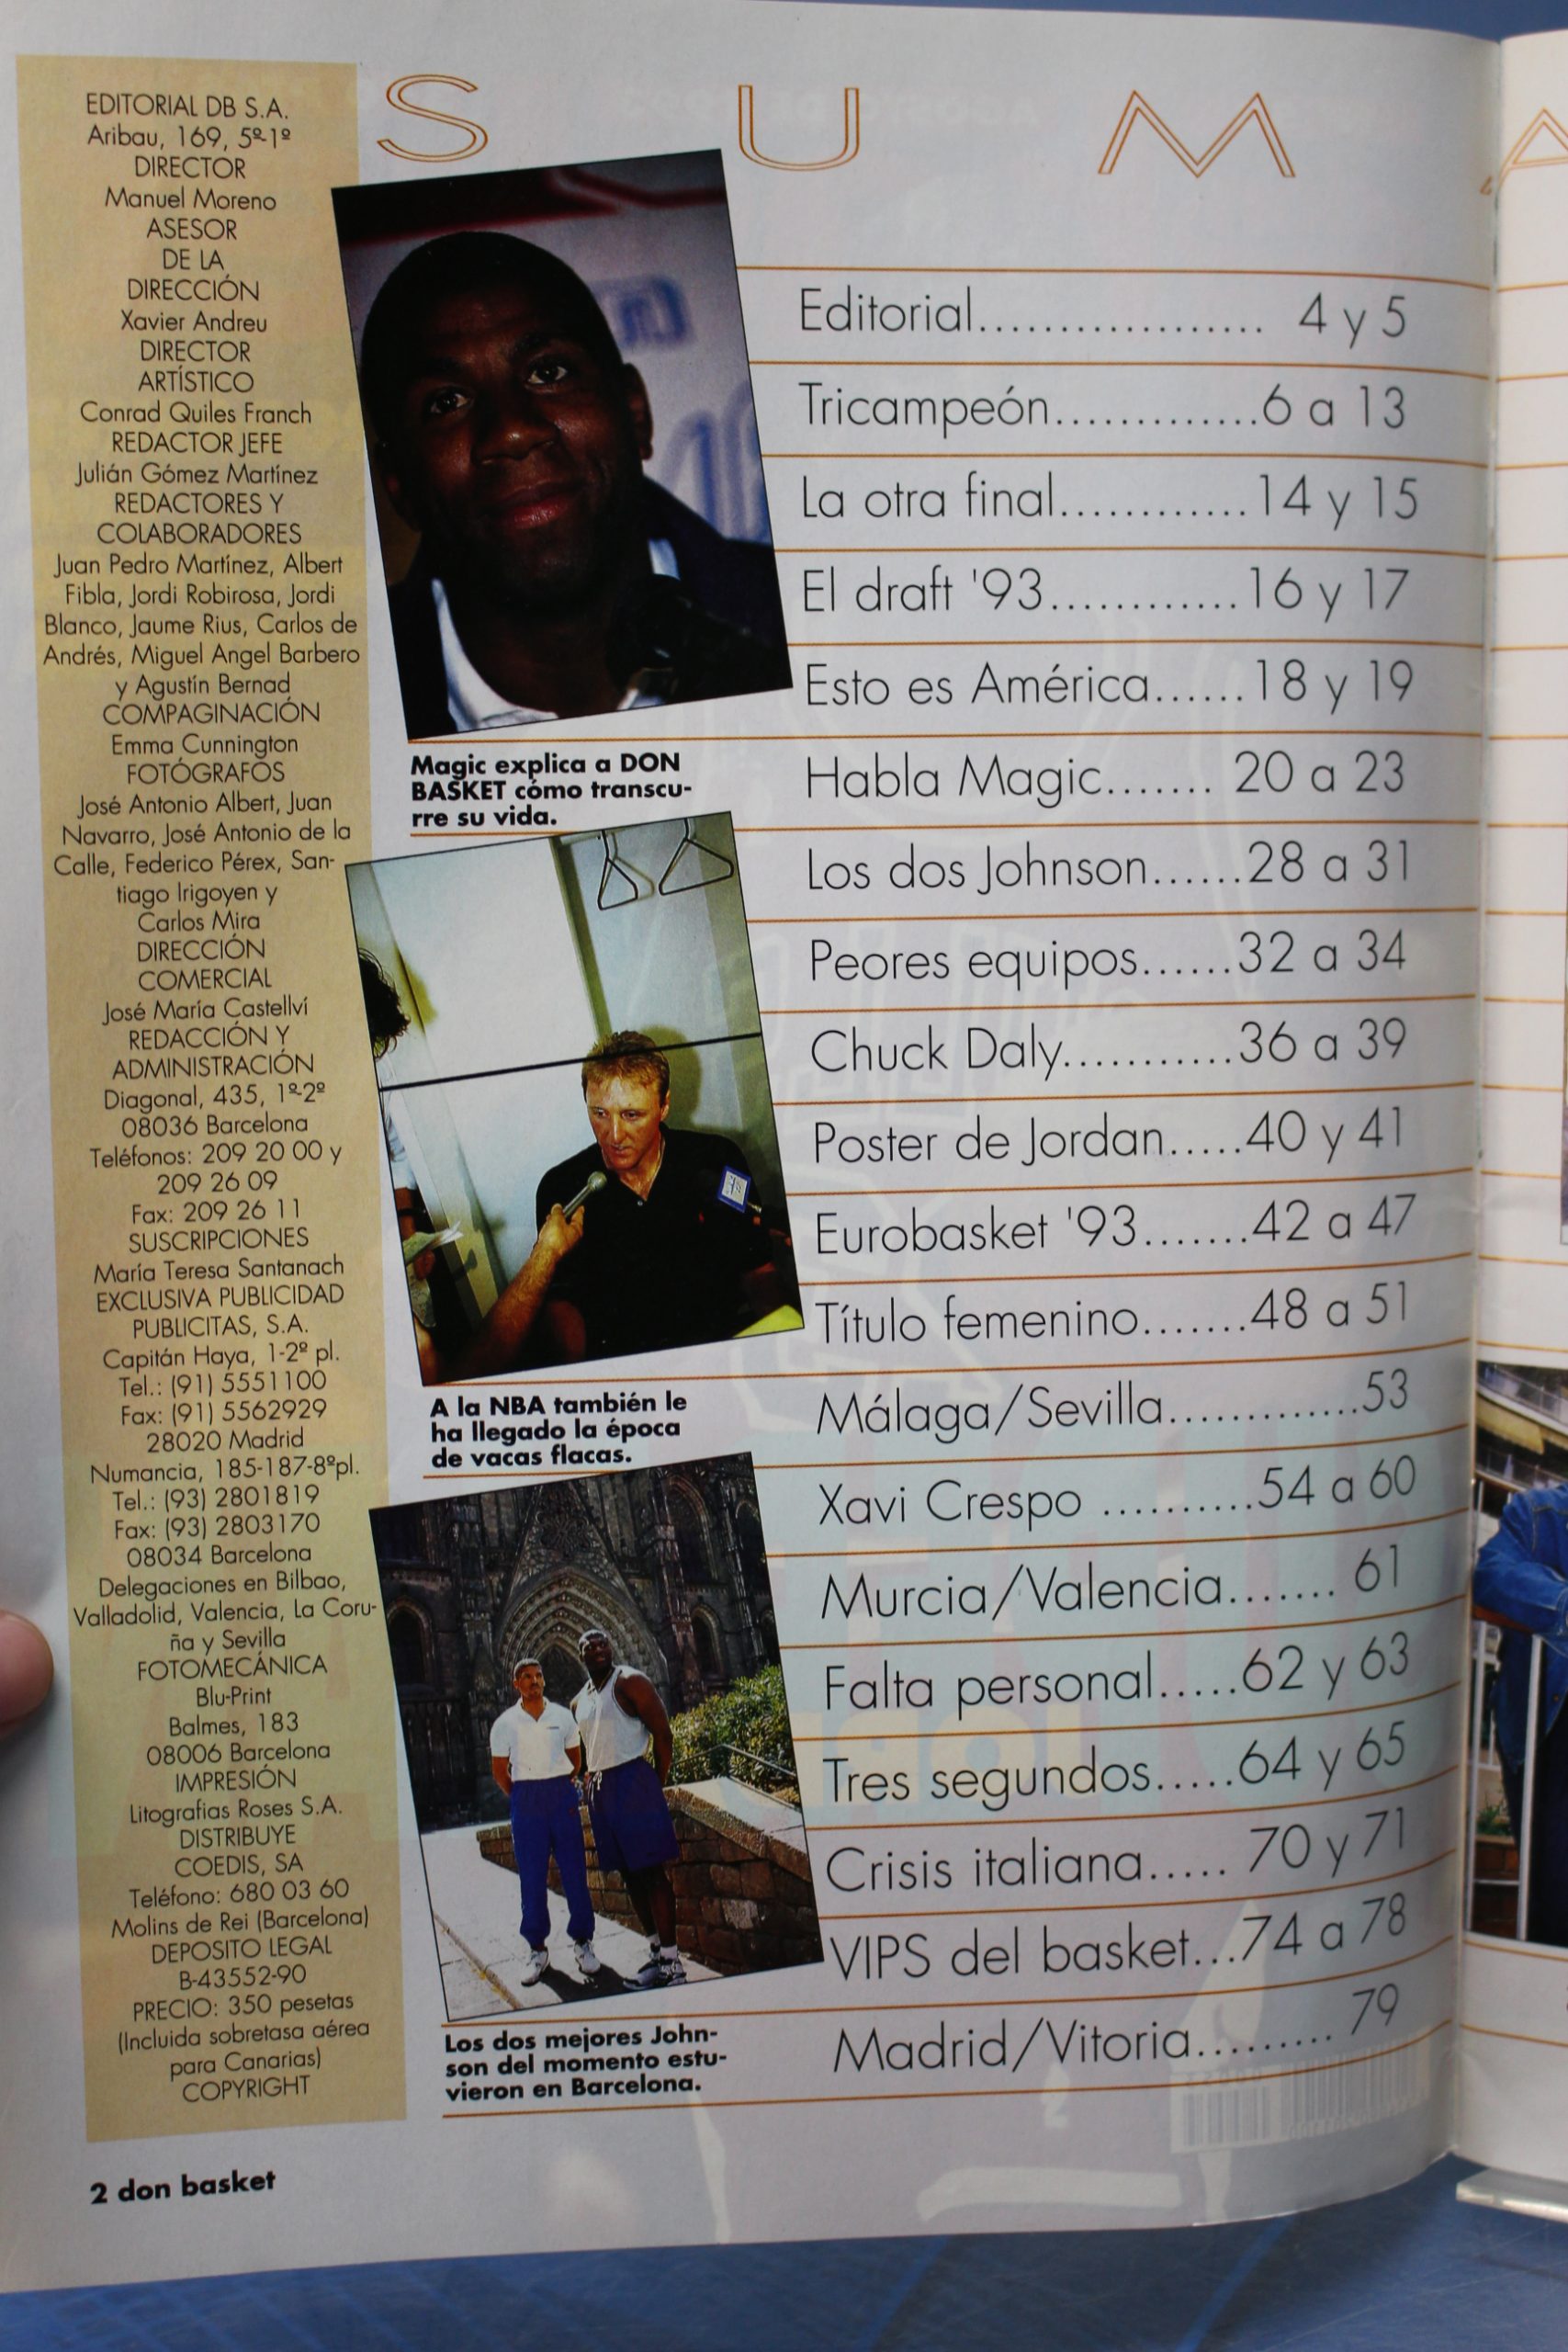 S U M A
EDITORIAL DB S.A.
Aribau, 169, 5º-1º
DIRECTOR
Manuel Moreno
ASESOR
DE LA
DIRECCIÓN
Xavier Andreu
DIRECTOR
ARTÍSTICO
Conrad Quiles Franch
REDACTOR JEFE
Julián Gómez Martínez
REDACTORES Y
COLABORADORES
Juan Pedro Martínez, Albert
Fibla, Jordi Robirosa, Jordi
Blanco, Jaume Rius, Carlos de
Andrés, Miguel Angel Barbero
y Agustín Bernad
COMPAGINACIÓN
Emma Cunnington
FOTÓGRAFOS
José Antonio Albert, Juan
Navarro, José Antonio de la
Calle, Federico Pérex, San-
tiago Irigoyen y
Carlos Mira
DIRECCIÓN
COMERCIAL
José María Castellví
REDACCIÓN Y
ADMINISTRACIÓN
Diagonal, 435, 1º-2º
08036 Barcelona
Teléfonos: 209 20 00 y
209 26 09
Fax: 209 26 11
SUSCRIPCIONES
María Teresa Santanach
EXCLUSIVA PUBLICIDAD
PUBLICITAS, S.A.
Capitán Haya, 1-2º pl.
Tel.: (91) 5551100
Fax: (91) 5562929
28020 Madrid
Numancia, 185-187-8ºpl.
Tel.: (93) 2801819
Fax: (93) 2803170
08034 Barcelona
Delegaciones en Bilbao,
Valladolid, Valencia, La Coru-
ña y Sevilla
FOTOMECÁNICA
Blu-Print
Balmes, 183
08006 Barcelona
IMPRESIÓN
Litografias Roses S.A.
DISTRIBUYE
COEDIS, SA
Teléfono: 680 03 60
Molins de Rei (Barcelona)
DEPOSITO LEGAL
B-43552-90
PRECIO: 350 pesetas
(Incluida sobretasa aérea
para Canarias)
COPYRIGHT
Magic explica a DON
BASKET cómo transcu-
rre su vida.
A la NBA también le
ha llegado la época
de vacas flacas.
Los dos mejores John-
son del momento estu-
vieron en Barcelona.
Editorial.................. 4 y 5
Tricampeón.............6 a 13
La otra final............14 y 15
El draft '93............16 y 17
Esto es América......18 y 19
Habla Magic....... 20 a 23
Los dos Johnson......28 a 31
Peores equipos......32 a 34
Chuck Daly...........36 a 39
Poster de Jordan.....40 y 41
Eurobasket '93.......42 a 47
Título femenino.......48 a 51
Málaga/Sevilla.............53
Xavi Crespo ..........54 a 60
Murcia/Valencia....... 61
Falta personal.....62 y 63
Tres segundos.....64 y 65
Crisis italiana..... 70 y 71
VIPS del basket...74 a 78
Madrid/Vitoria......... 79
2 don basket